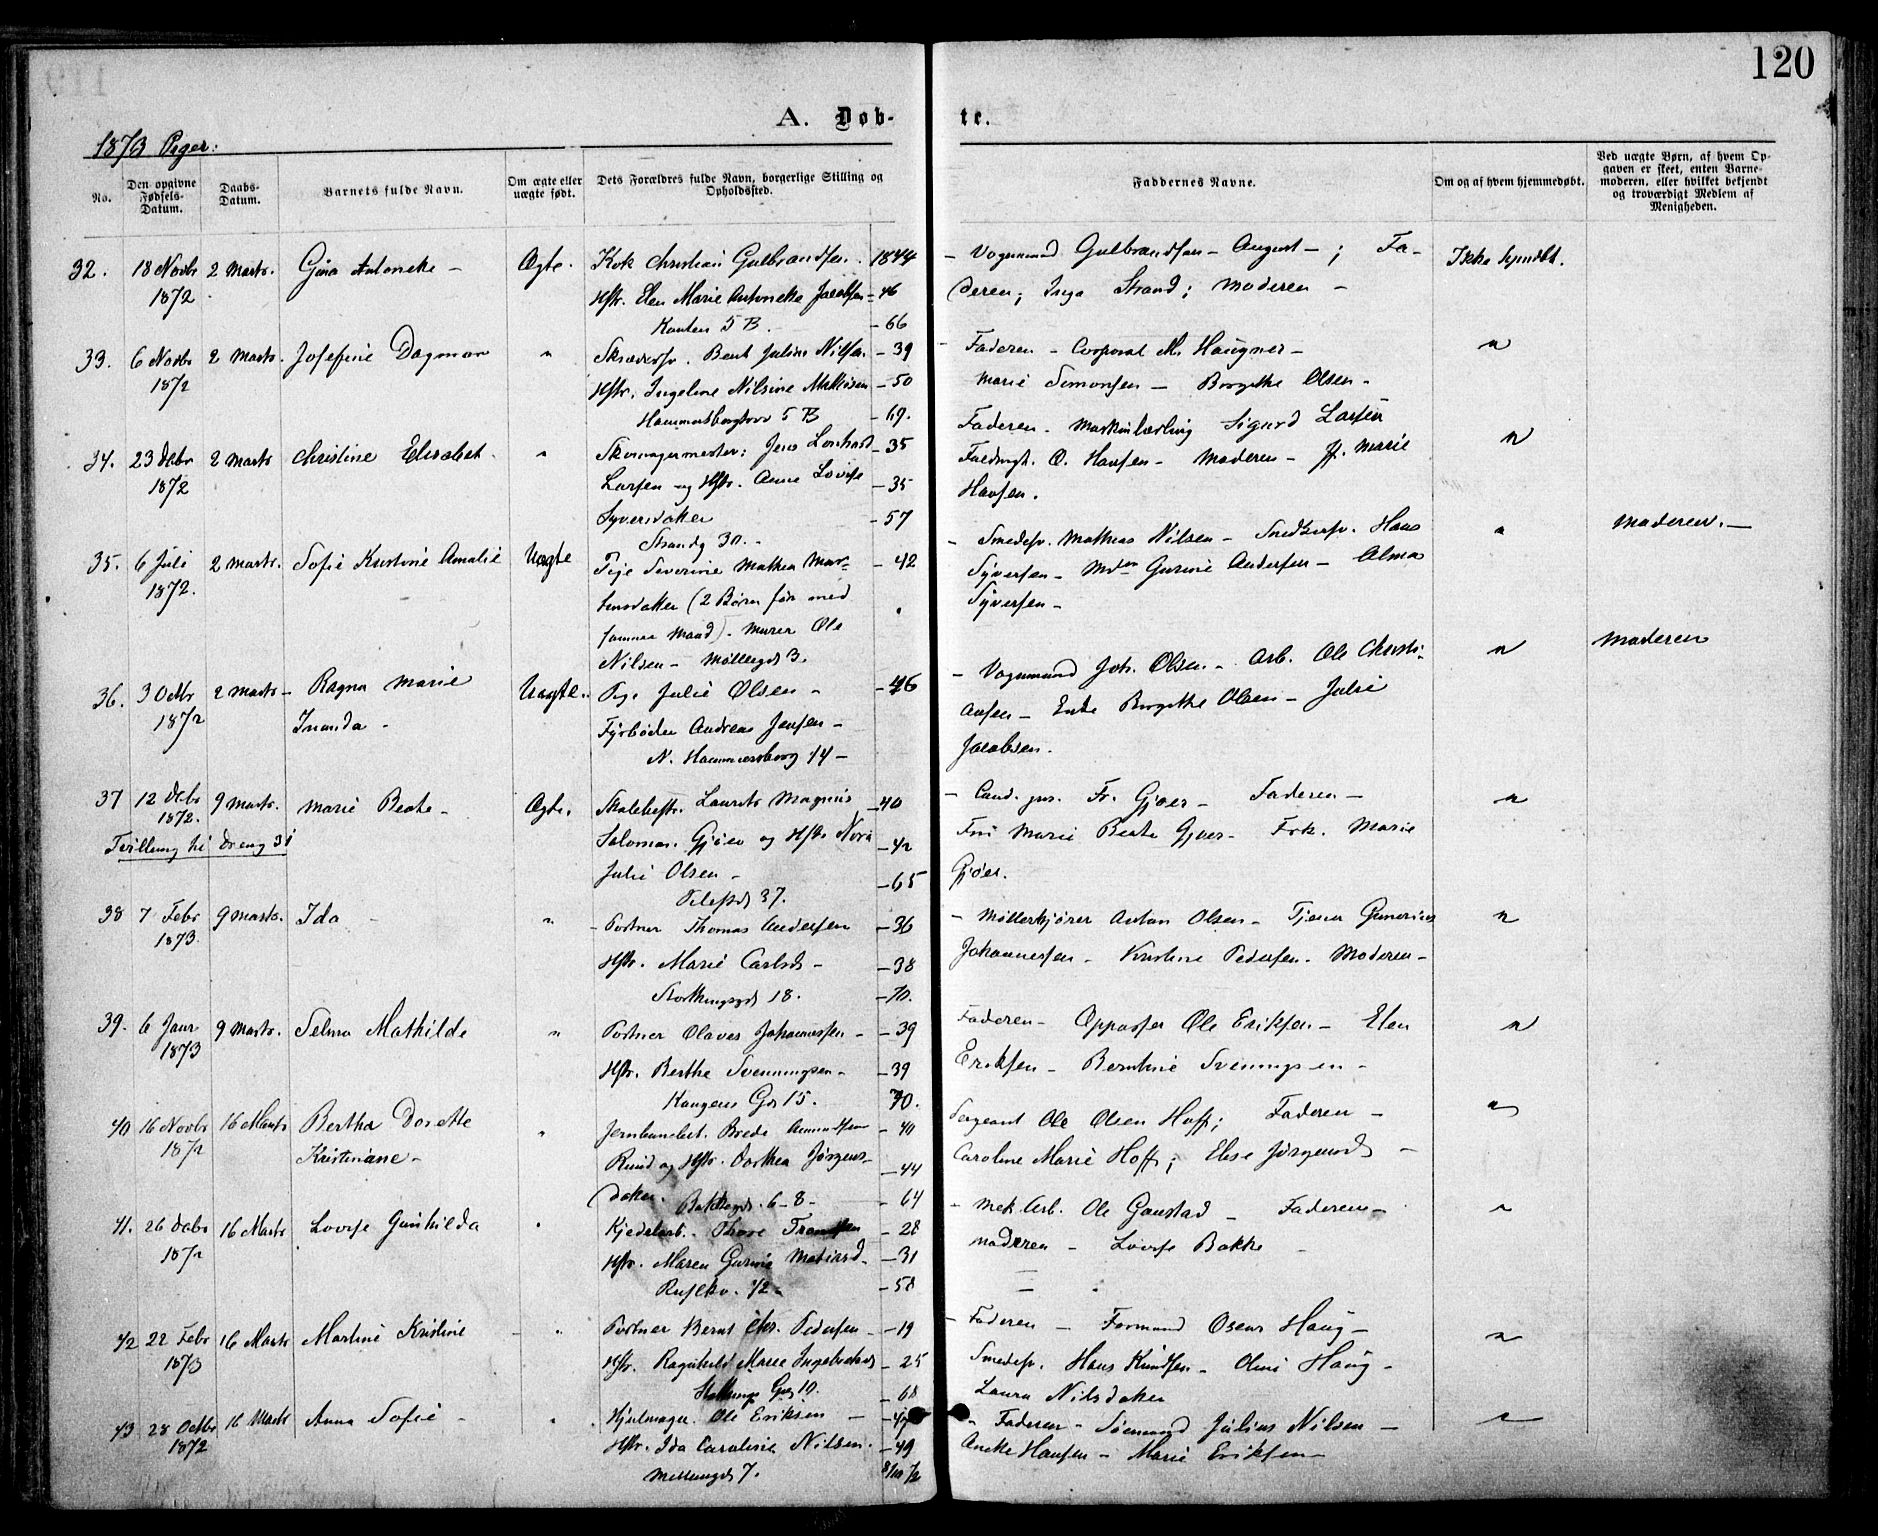 120
A. Døb-te.
1873 Piger:
No.
Den opgivne Fødsels-Datum.
Daabs-Datum.
Barnets fulde Navn.
Om ægte eller uægte født.
Dets Forældres fulde Navn, borgerlige Stilling og Opholdssted.
Faddernes Navne.
Om og af hvem hjemmedøbt.
Ved uægte Børn, af hvem Op-
gaven er skeet, enten Barne-
moderen, eller hvilket bekjendt
og troværdigt Medlem af
Menigheden.
32. 18 Novbr 2 Marts. Gina Antoneke - Ægte. Kok Christian Gulbrandsen. 1844 - Vognmand Gulbrandsen - August - ; Fa-
1872 Hstr. Elen Marie Antoneke Jacobsen - 46 deren; Inga Strand; Moderen -
5 B. - 66
33. 6 Novbr 2 Marts. Josefine Dagmar " Bent Julius Nilsen - 39 Faderen - Corporal M. Haugner - "
1872 Hstr. Ingeline Nilsine - 50 Marie Simonsen - Birgitte Olsen -
5 B - 69.
34. 23 Debr 2 Marts Christine Elisabet. " Skomagermester: Jens - 35 Faderen - Sigurd Larsen "
1872 Larsen og Hstr. Anne Lovise - 35 O. Hansen - Moderen - Marie
Syversdatter - 57 Hansen.
Strandg 30. -
35. 6 Juli 2 Marts. Sofie Kristine Amalie Uægte Pige Severine Mathea Mar- - 42 - Smedesv. Mathias Nilsen - Snedkersv. Hans " Moderen. -
1872. tinsdatter (2 Børn før med Syversen - Gurine Andersen - Alma
samme Mand). Murer Ole Syversen -
Nilsen - Møllergd 3.
36. 3 Octbr 2 Marts - Ragna Marie Uægte. Pige Julie Olsen - - 46 - Vognmand Joh. Olsen - Arb. Ole Christi- " Moderen
1872 - Fyrbøder Andreas Jensen - ansen - Enke Birgitte Olsen - Julie
N. Hammersborg 14 - Jacobsen.
37 12 Debr 9 Marts. Marie Beate - Ægte. Laurits Magnus - 40 - Cand. jur. Fr. Gjøer - Faderen - "
1872. Gjøer og Hstr Nora - 42 Fru Marie Beate Gjøer - Frk. Marie
Tvilling til Dreng 31 Julie Olsen - - 65 Gjøer.
37.
38 7 Febr 9 Marts. Ida - " - Portner Thomas Andersen - 36 - Møllerkjører Anton Olsen - Tjener Gunerius "
1873. Hstr. Marie Carlsd - - 38 Johannessen - Kristine Pedersen - Moderen -
Storthingsgd 18. - 70.
39. 6 Janr 9 Marts. Selma Mathilde " Portner Olaves Johannessen - - 39 Faderen - Oppasser Ole Eriksen - Elen "
1873 Hstr. Berthe Svenningsen - - 39 Eriksen - Berntine Svenningsen -
Kongens Gd 15. 70.
40 16 Novbr 16 Marts Bertha Dorette " Brede Amundsen - 40 Sergeant Ole Olsen Hoff; Faderen - "
1872 Kristiane - Ruud og Hstr. Dorthea Jørgens- - 44 Caroline Marie Hoff; Elise Jørgensd -
datter. 6-8 - - 64
41. 26 Debr 16 Marts Lovise Gunhilda " Kjedelarb. Thore - 28 - Mek. Arb. Ole Gaustad - Faderen - "
1872 Hstr. Maren Gurine - 31 Moderen - Lovise Bakke -
- 58
42 22 Febr 16 Marts Martine Kristine - " Portner Bernt Chr. Pedersen - - 19 - Faderen - Formand Oscar Haug - "
1873 Hstr. Ragnhild Marie - 25 Smedesv. Hans Knudsen - Oline Haug -
Gd 10. - 68 Laura Nilsdatter
43 28 Octbr 16 Marts Anna Sofie - " Hjulmager. Ole Eriksen - - Faderen - Sømand Julius Nilsen - "
1872 Hstr. Ida Caroline Nilsen. - 49 Hansen - Marie Eriksen -
7.